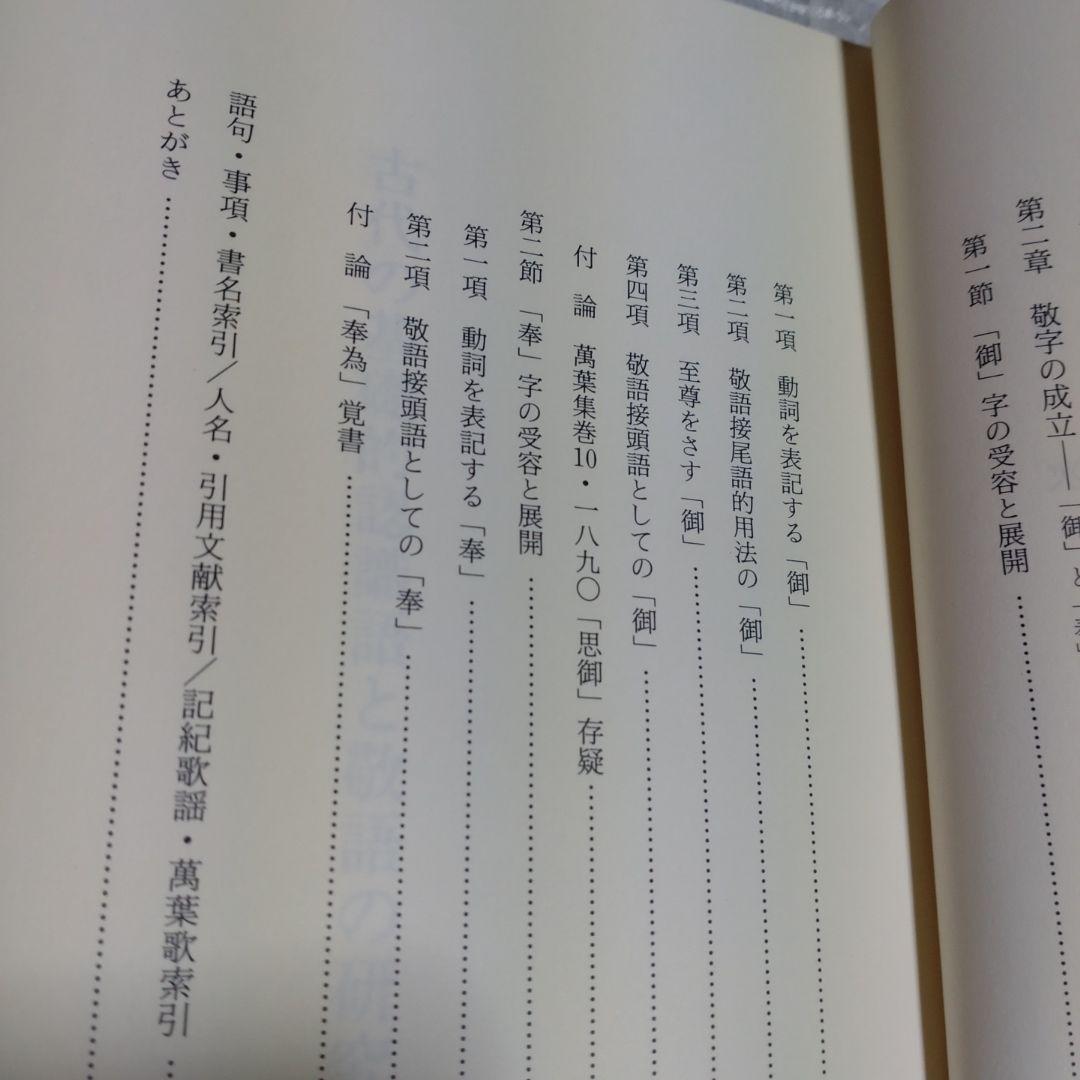 第二章　敬字の成立――「御」と「奉」
第一節　「御」字の受容と展開…………
第一項　動詞を表記する「御」…………
第二項　敬語接尾語的用法の「御」…………
第三項　至尊をさす「御」…………
第四項　敬語接頭語としての「御」…………
付　論　萬葉集巻10・一八九〇「思御」存疑…………
第二節　「奉」字の受容と展開…………
第一項　動詞を表記する「奉」…………
第二項　敬語接頭語としての「奉」…………
付　論　「奉為」覚書…………
語句・事項・書名索引／人名・引用文献索引／記紀歌謡・萬葉歌索引…
あとがき…………